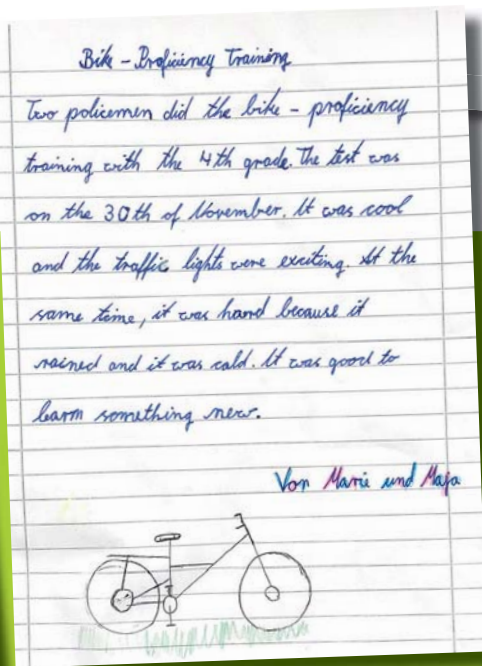 Bike - Proficiency Training
Two policemen did the bike - proficiency
training with the 4th grade. The test was
on the 30th of November. It was cool
and the traffic lights were exciting. At the
same time, it was hard because it
rained and it was cold. It was good to
learn something new.
Von Marie und Maja